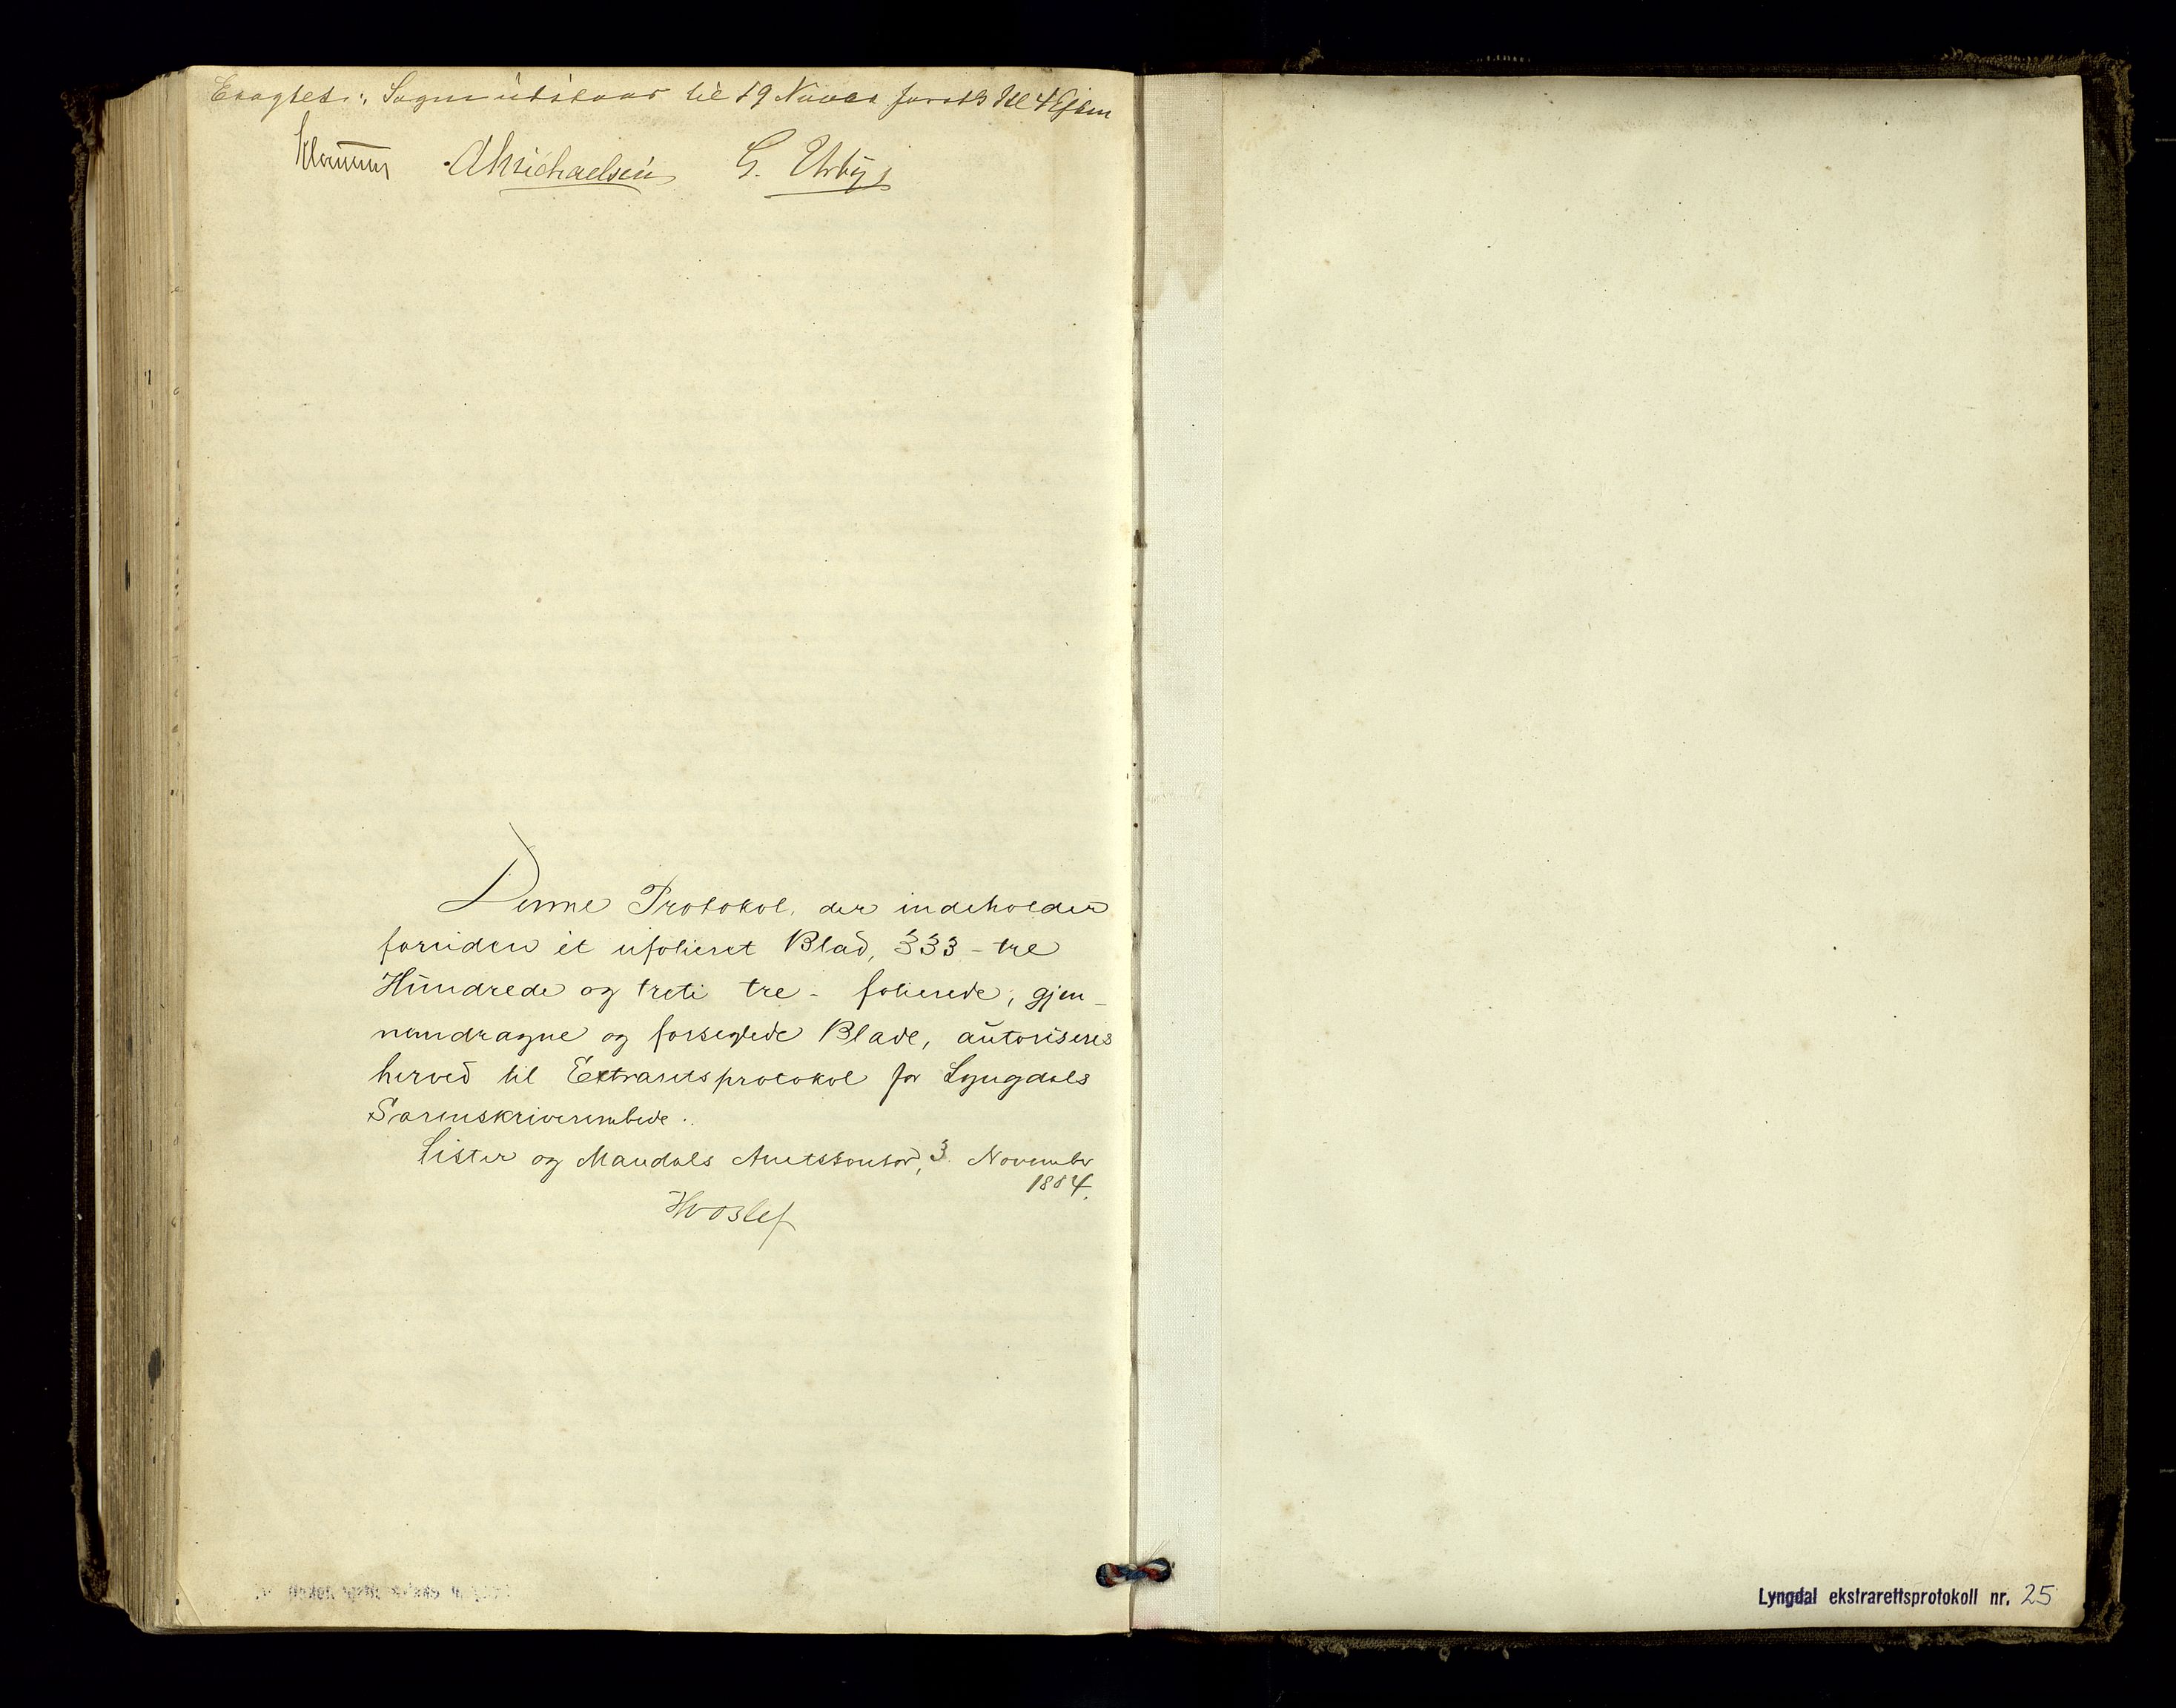 Eragtet: Sagen udstaar til 19 Novbr førstk Kl 4 Efterm
AMichaelsen G. Urbye
Denne Protokol, der indeholder
foruden et ufolieret Blad, 333 - tre
Hundrede og treti tre - folierede, gjen-
nemdragne og forseglede Blade, autoriseres
herved til Extraretsprotokol for Lyngdals
Sorenskriverembede.
Lister og Mandals Amtskontor, 3 November
1884.
Hvoslef
Lyngdal ekstrarettsprotokoll nr. 25